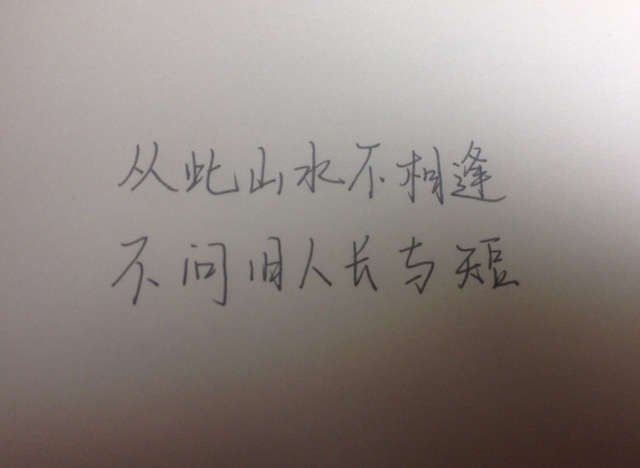 从此山水不相逢
不问旧人长与短